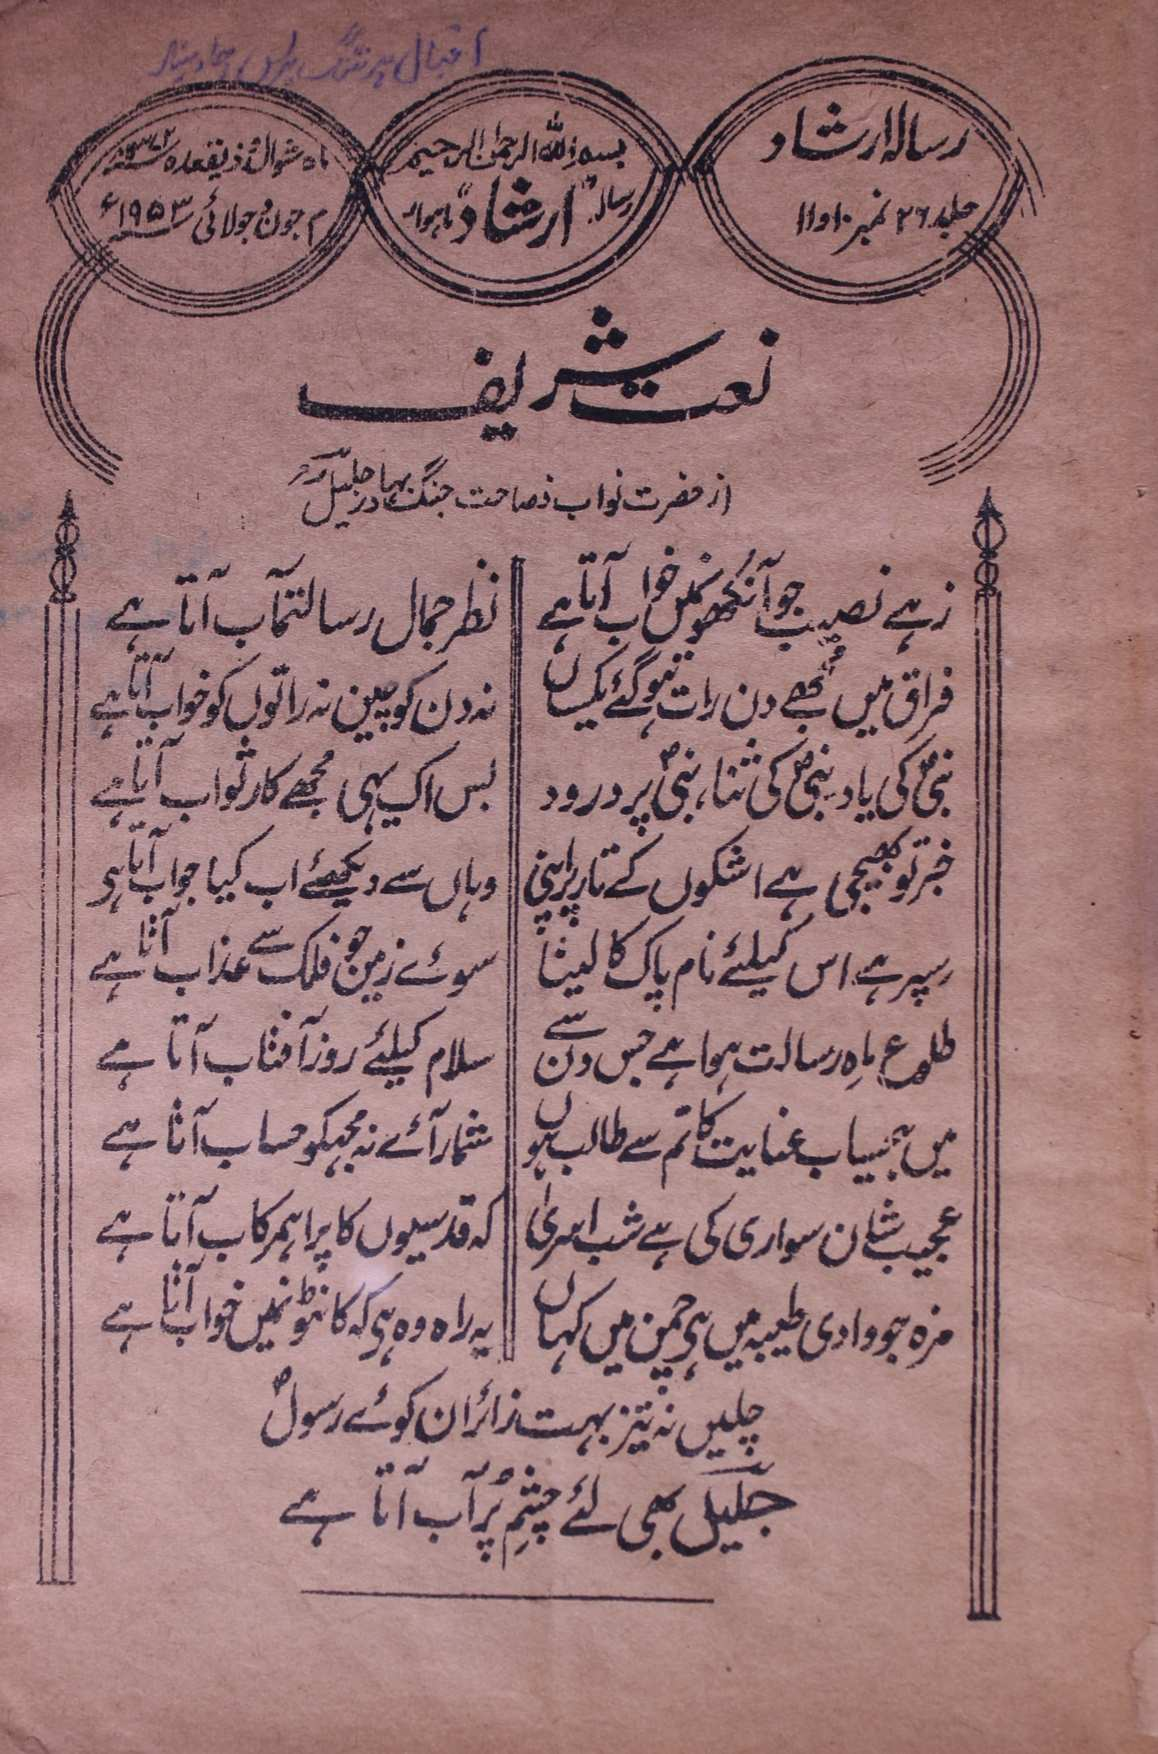 اقبال پرنٹنگ پریس چار مینار
رسالہ ارشاد
جلد ۲۶ نمبر ۱۰ و ۱۱
بسم اللہ الرحمٰن الرحیم
رسالہ "ارشاد" ماہوار
ماہ شوال و ذیقعدہ ۱۳۷۲ھ
م جون و جولائی ۱۹۵۳ء
نعت شریف
از حضرت نواب فصاحت جنگ بہادر جلیل
زہے نصیب جو آنکھونمیں خواب آتا ہے نظر جمال رسالتمآب آتا ہے
فراق میں مجھے دن رات ہوگئے یکساں نہ دن کو چین نہ راتوں کو خواب آتا ہے
نبیؐ کی یاد، نبیؐ کی ثنا، نبیؐ پر درود بس اک یہی مجھے کار ثواب آتا ہے
خبر تو بھیجی ہے اشکوں کے تار پر اپنی وہاں سے دیکھئے اب کیا جواب آتا ہی
سپر ہے اس کیلئے نام پاک کا لینا سوئے زمین جو فلک سے عذاب آتا ہے
طلوع ماہِ رسالت ہوا ہے جس دن سے سلام کیلئے روز آفتاب آتا ہے
میں بحیساب عنایت کا تم سے طالب ہوں شمار آئے نہ مجہکو حساب آتا ہے
عجیب شان سواری کی ہے شب اسریٰ کہ قدسیوں کا پرا ہمرکاب آتا ہے
مزہ جو وادی طیبہ میں ہی چمن میں کہاں یہ راہ وہ ہی کہ کانٹونمیں خواب آتا ہے
چلیں نہ تیز بہت زائران کوئے رسولؐ
جلیل بھی لئے چشمِ پُر آب آتا ہے